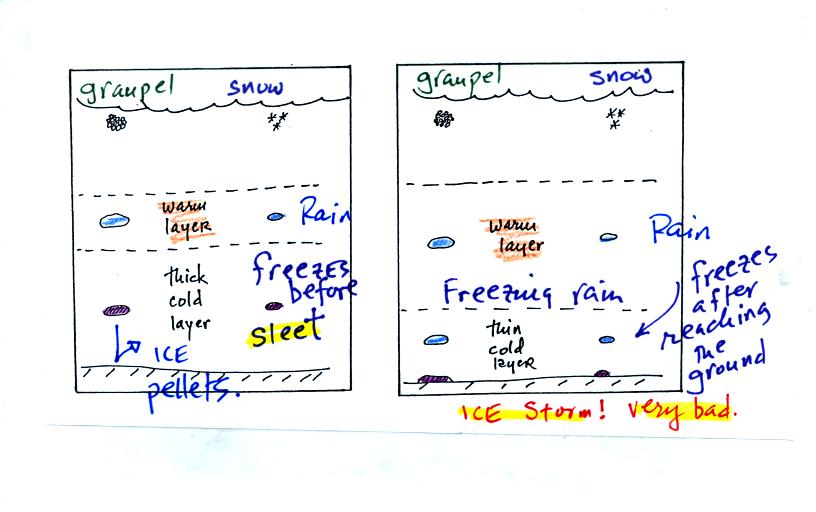 graupel snow
warm
layer
Rain
thick
cold
layer
freezes
before
sleet
ICE
pellets.
graupel snow
warm
layer
Rain
Freezing rain
thin
cold
layer
freezes
after
reaching
the
ground
ICE Storm! very bad.